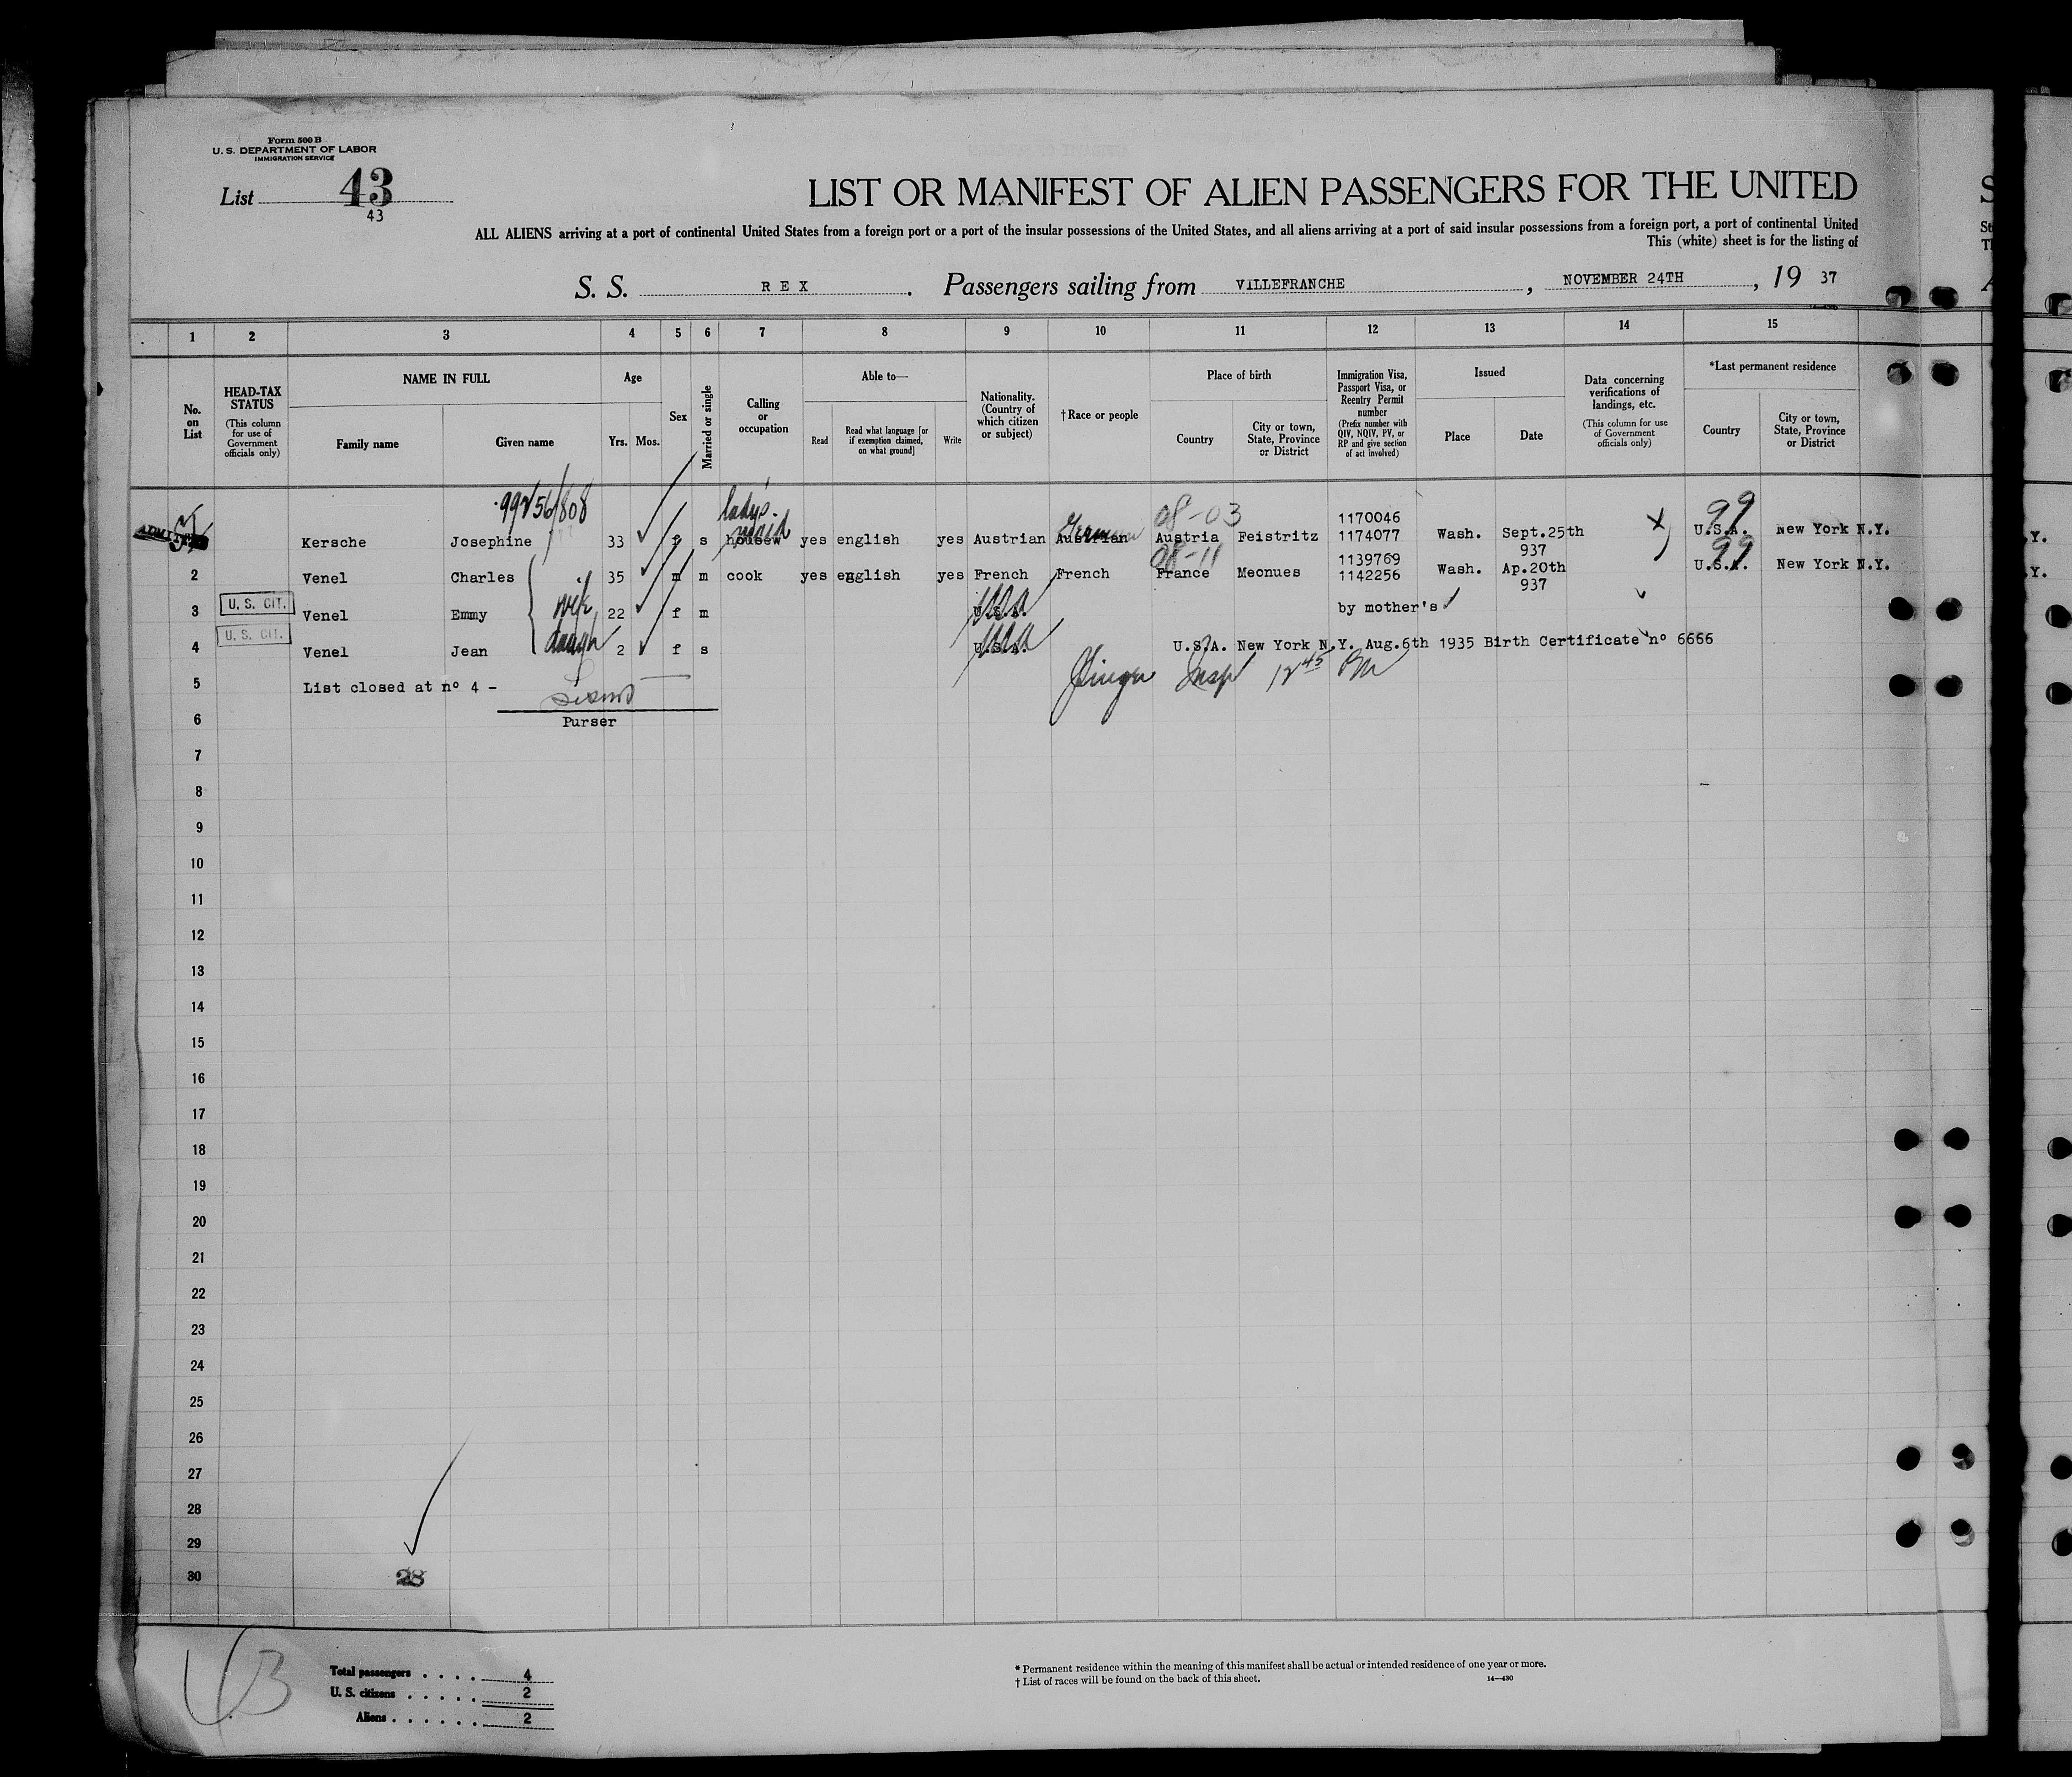 Form 500 B
U. S. DEPARTMENT OF LABOR
IMMIGRATION SERVICE
List 43
43
LIST OR MANIFEST OF ALIEN PASSENGERS FOR THE UNITED
ALL ALIENS arriving at a port of continental United States from a foreign port or a port of the insular possessions of the United States, and all aliens arriving at a port of said insular possessions from a foreign port, a port of continental United
This (white) sheet is for the listing of
S. S. REX. Passengers sailing from VILLEFRANCHE, NOVEMBER 24TH, 19 37
1 2 3 4 5 6 7 8 9 10 11 12 13 14 15
No. on List
HEAD-TAX STATUS
(This column for use of Government officials only)
NAME IN FULL
Family name Given name
Age
Yrs. Mos.
Sex
Married or single
Calling or occupation
Able to—
Read
Read what language [or if exemption claimed, on what ground]
Write
Nationality. (Country of which citizen or subject)
† Race or people
Place of birth
Country
City or town, State, Province or District
Immigration Visa, Passport Visa, or Reentry Permit number
(Prefix number with QIV, NQIV, PV, or RP and give section of act involved)
Issued
Place Date
Data concerning verifications of landings, etc.
(This column for use of Government officials only)
*Last permanent residence
Country
City or town, State, Province or District
lady's 08-03 99
maid German
Kersche Josephine 33 f s housew yes english yes Austrian Austrian Austria Feistritz 1170046 1174077 Wash. Sept.25th 937 U.S.A. New York N.Y.
08-11 99
2 Venel Charles 35 m m cook yes english yes French French France Meonues 1139769 1142256 Wash. Ap.20th 937 U.S.A. New York N.Y.
U. S. CIT.
3 Venel Emmy wife 22 f m U.S.A. by mother's
U. S. CIT.
4 Venel Jean daugh 2 f s U.S.A. U.S.A. New York N.Y. Aug.6th 1935 Birth Certificate nº 6666
5 List closed at nº 4 -
Insp 12 45 PM
6 Purser
7
8
9
10
11
12
13
14
15
16
17
18
19
20
21
22
23
24
25
26
27
28
29
30
28
Total passengers . . . . 4
U. S. citizens . . . . . 2
Aliens . . . . . . 2
* Permanent residence within the meaning of this manifest shall be actual or intended residence of one year or more.
† List of races will be found on the back of this sheet.
14—430